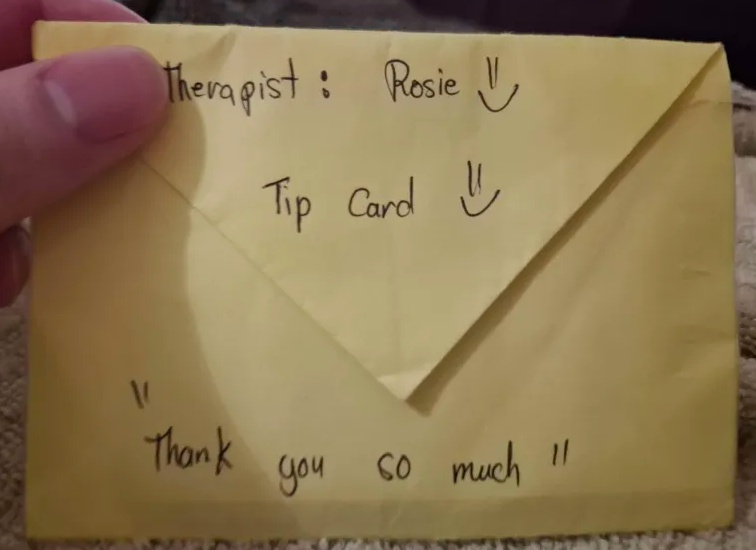 Therapist : Rosie
Tip Card
"Thank you so much"